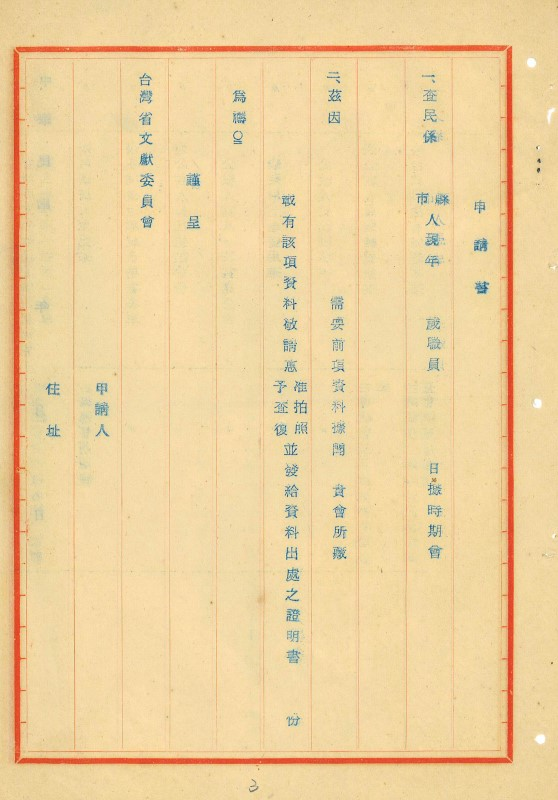 申請書
一、查民係　縣市人現年　歲職員　日據時期曾
二、茲因　需要前項資料據聞　貴會所藏
載有該項資料敬請惠准拍照予查復並發給資料出處之證明書　份
為禱。
謹呈
台灣省文獻委員會
申請人
住址
3